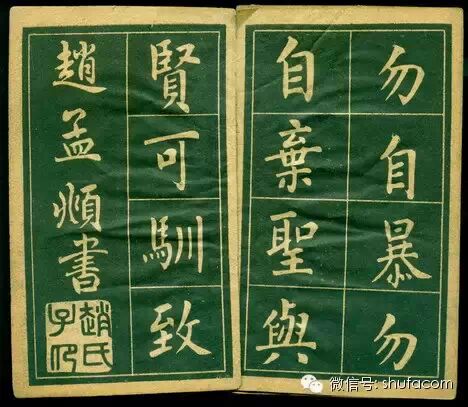 勿自暴勿
自棄聖與
賢可馴致
趙孟頫書
趙氏子昂
微信号: shufacom